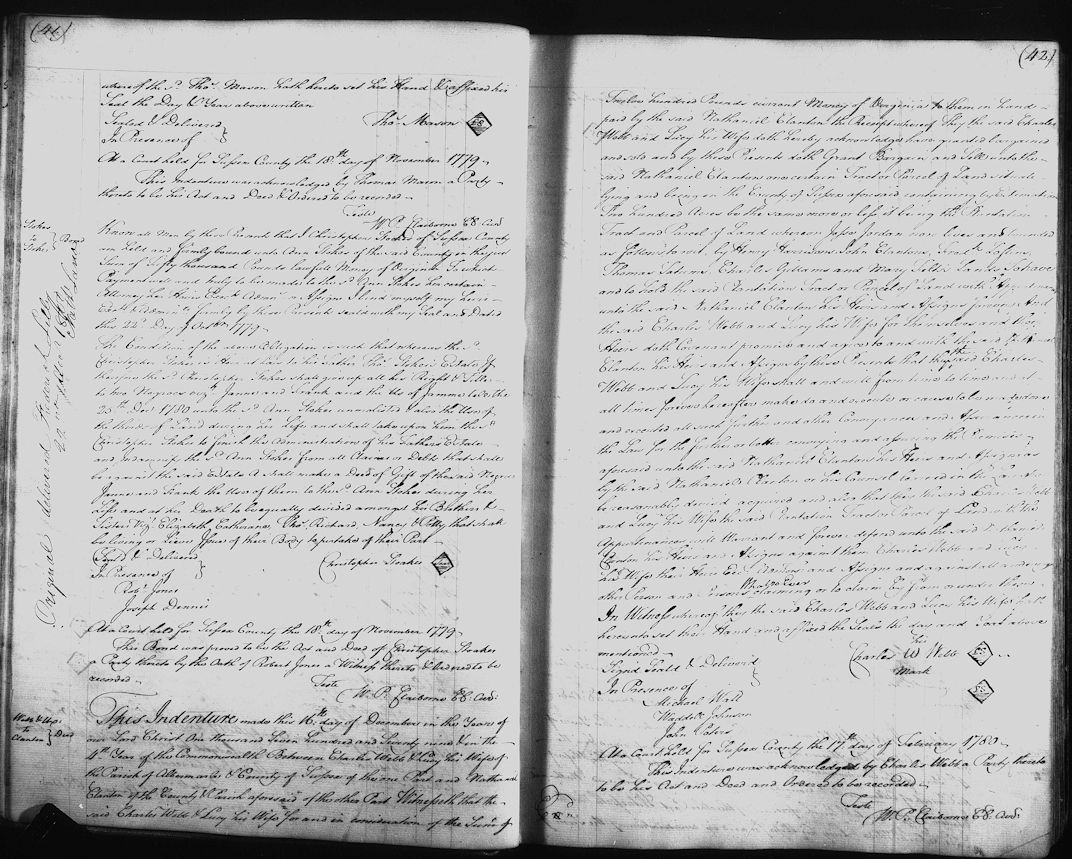 (41)
whereof the sd. Thos. Mason hath hereto set his Hand & affixed his
Seal the Day & Year above written
Sealed & Delivered
In Presence of
Thos. Mason
At a Court held for Sussex County the 18th. day of November 1779
This Indenture was acknowledged by Thomas Mason a Party
thereto to be his Act and Deed & Ordered to be recorded
Teste
W P. Claiborne
Stokes
to
Stokes
Bond
Original delivered
Know all Men by these Presents that I Christopher Stokes of Sussex County
am held and firmly bound unto Ann Stokes of the said County in the just
Sum of fifty thousand Pounds lawfull Money of Virginia to which
Payment well and truly to be made to the sd. Ann Stokes his certain
Attorney her Heirs Exrs. Admrs. or Assigns I bind myself my Heirs
firmly by these Presents sealed with my Seal and Dated
this 22d. Day of 1779
The Condition of the above Obligation is such that whereas the sd.
Christopher Stokes is Heir at Law to his Father Thos. Stokes Estate If
therefore the sd. Christopher Stokes shall give up all his Right & Title
to two Negroes Jenne and Frank and the Use of
25th. Decr. 1780 unto the sd. Ann Stokes also the Use of
the thirds of Land during her Life and shall take upon him the sd.
Christopher Stokes to finish the Administration of his Fathers Estate
and indemnify the sd. Ann Stokes from all Claims or Debts that shall
be against the said Estate & shall make a Deed of Gift of the said Negroes
Jenne and Frank the Use of them to the sd. Ann Stokes during her
Life and at her Death to be equally divided amongst his Brothers &
Sisters Elizabeth Catharine Thos. Richard Nancy & Polly that shall
be living or their Issue of their Body to partake of their Part
Seal'd & Delivered
In Presence of
Christopher Stokes
Robt. Jones
Joseph Dennis
At a Court held for Sussex County the 18th. day of November 1779
This Bond was proved to be the Act and Deed of Christopher Stokes
a Party thereto by the Oath of Robert Jones a Witness thereto & Ordered to be
recorded
Teste
W. P. Claiborne
Webb &
to
Clanton
Deed
This Indenture made this 16th. day of December in the Years of
our Lord Christ One thousand seven hundred and Seventy nine & in the
4th. Year of the Commonwealth Between Charles Webb & Lucy his Wife of
the Parish of Albemarle & County of Sussex of the one Part and Nathaniel
Clanton of the County & Parish aforesaid of the other Part Witnesseth that the
said Charles Webb & Lucy his Wife for and in consideration of the Sum of
(42)
Twelve hundred Pounds current Money of Virginia to them in hand
paid by the said Nathaniel Clanton the Receipt whereof they the said Charles
Webb and Lucy his Wife doth hereby acknowledge have granted bargained
and sold and by these Presents doth Grant Bargain and Sell unto the
said Nathaniel Clanton one certain Tract or Parcel of Land situate
lying and being in the County of Sussex aforesaid containing by Estimation
Two hundred Acres be the same more or less it being the Plantation
Tract and Parcel of Land whereon Jesse Jordan now lives and bounded
as follows to wit, by Henry Harrisons John Clantons
Thomas Charles Gillams and Mary
and to hold the said Plantation Tract or Parcel of Land with Appurtenances
unto the said Nathaniel Clanton his Heirs and Assigns forever And
the said Charles Webb and Lucy his Wife for themselves and their
Heirs doth Covenant promise and agree to and with the said Nathaniel
Clanton his Heirs and Assigns by these Presents that they the said Charles
Webb and Lucy his Wife shall and will from time to time and at
all times forever hereafter make do and execute or cause to be made done
and executed all such further and other Conveyance and
the Law for the further or better conveying and assuring the Premises
aforesaid unto the said Nathaniel Clanton his Heirs and Assigns as
by the said Nathaniel Clanton or his Council learned in the Law shall
be reasonably devised acquired and also that they the said Charles Webb
and Lucy his Wife the said Plantation Tract or Parcel of Land with the
Appurtenances will Warrant and forever defend unto the said Nathaniel
Clanton his Heirs and Assigns against them Charles Webb and Lucy
his Wife their Heirs and Assigns and against all and every
other Person and Persons Whatsoever claiming or to claim by from or under them
In Witness whereof they the said Charles Webb and Lucy his Wife hath
hereunto set their Hand and affixed the Seals the day and Year above
mentioned
Signed Seald & Deliverd
In Presence of
his
Charles W Webb
Mark
Michael Wall
Johnson
John Peters
At a Court held for Sussex County the 17th. day of February 1780
This Indenture was acknowledged by Charles Webb a Party thereto
to be his Act and Deed and Ordered to be recorded
Teste
W. P. Claiborne